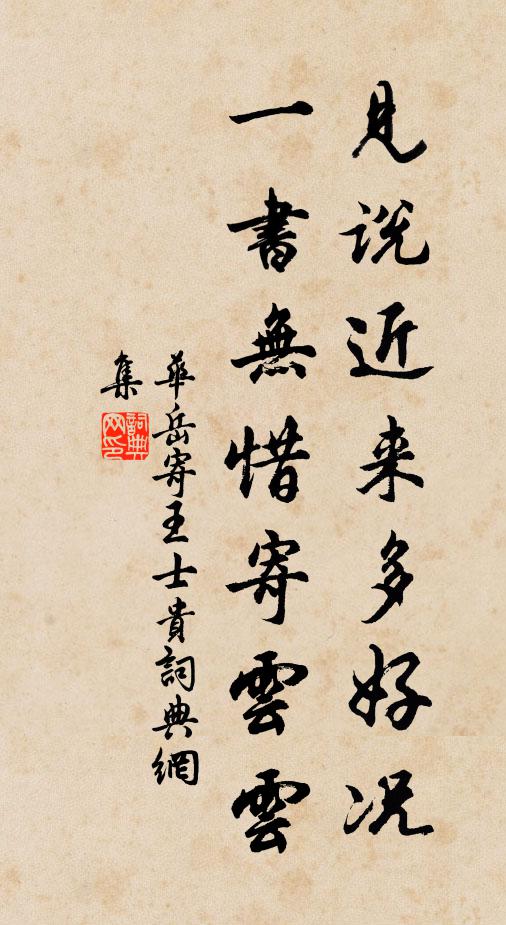 見説近来多好况
一書無惜寄雲雲
華岳寄王士貴詞典網
集
詞典网印